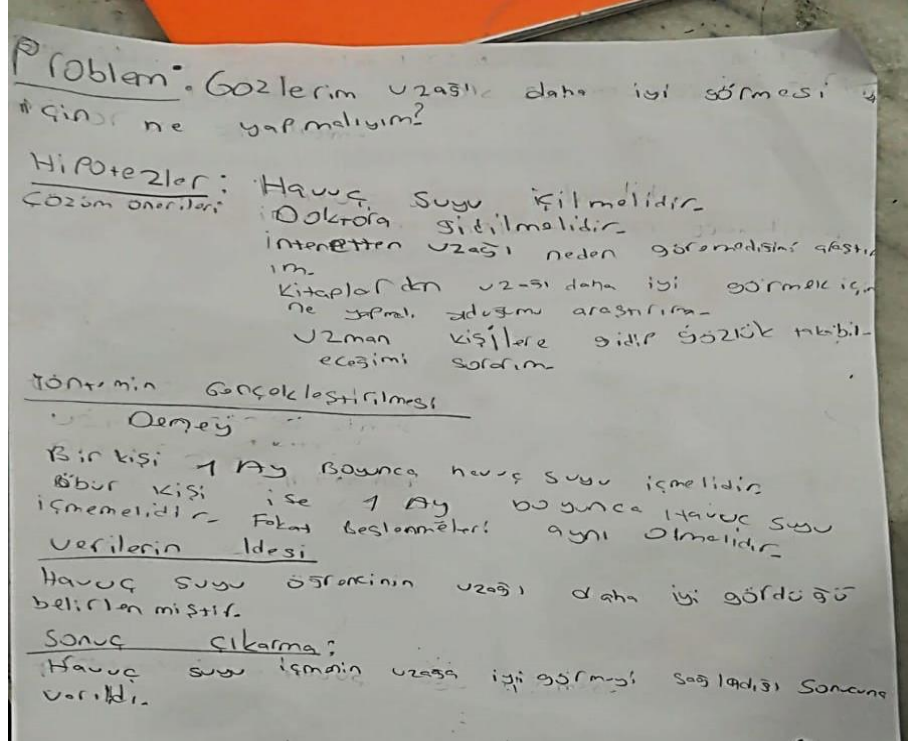 Problem: Gözlerim uzağı daha iyi görmesi
için ne yapmalıyım?
Hipotezler: Havuç suyu içilmelidir.
Çözüm önerileri Doktora gidilmelidir.
intenetten uzağı neden göremediğimi araştırı
ım.
Kitaplardan uzağı daha iyi görmek için
ne yapmalı olduğumu araştırırım.
Uzman kişilere gidip gözlük takabil-
eceğimi sorarım.
Yöntemin Gerçekleştirilmesi
Deney
Bir kişi 1 Ay Boyunca havuç suyu içmelidir.
Öbür kişi ise 1 Ay boyunca Havuç suyu
içmemelidir. Fakat Beslenmeleri aynı olmalıdır.
Verilerin ldesi
Havuç suyu öğrencinin uzağı daha iyi gördüğü
belirlenmiştir.
Sonuç Çıkarma:
Havuç suyu içmenin uzağa iyi görmeyi sağladığı Sonucuna
varıldı.